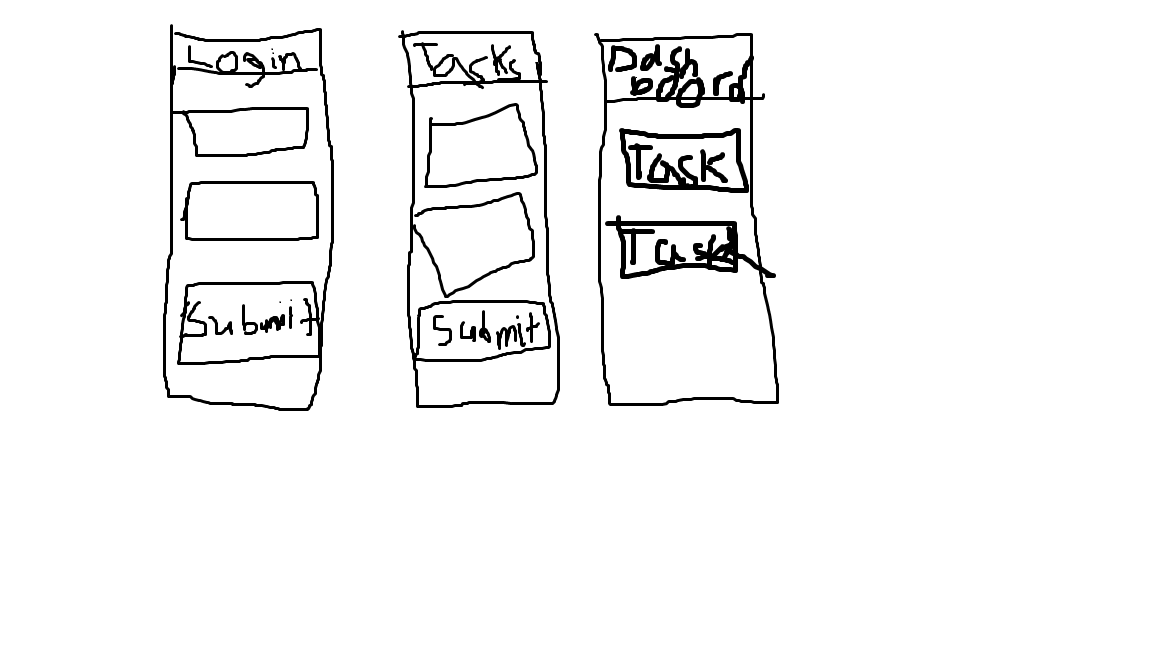 Login
Submit
Tasks
Submit
Dash
board
Task
Task